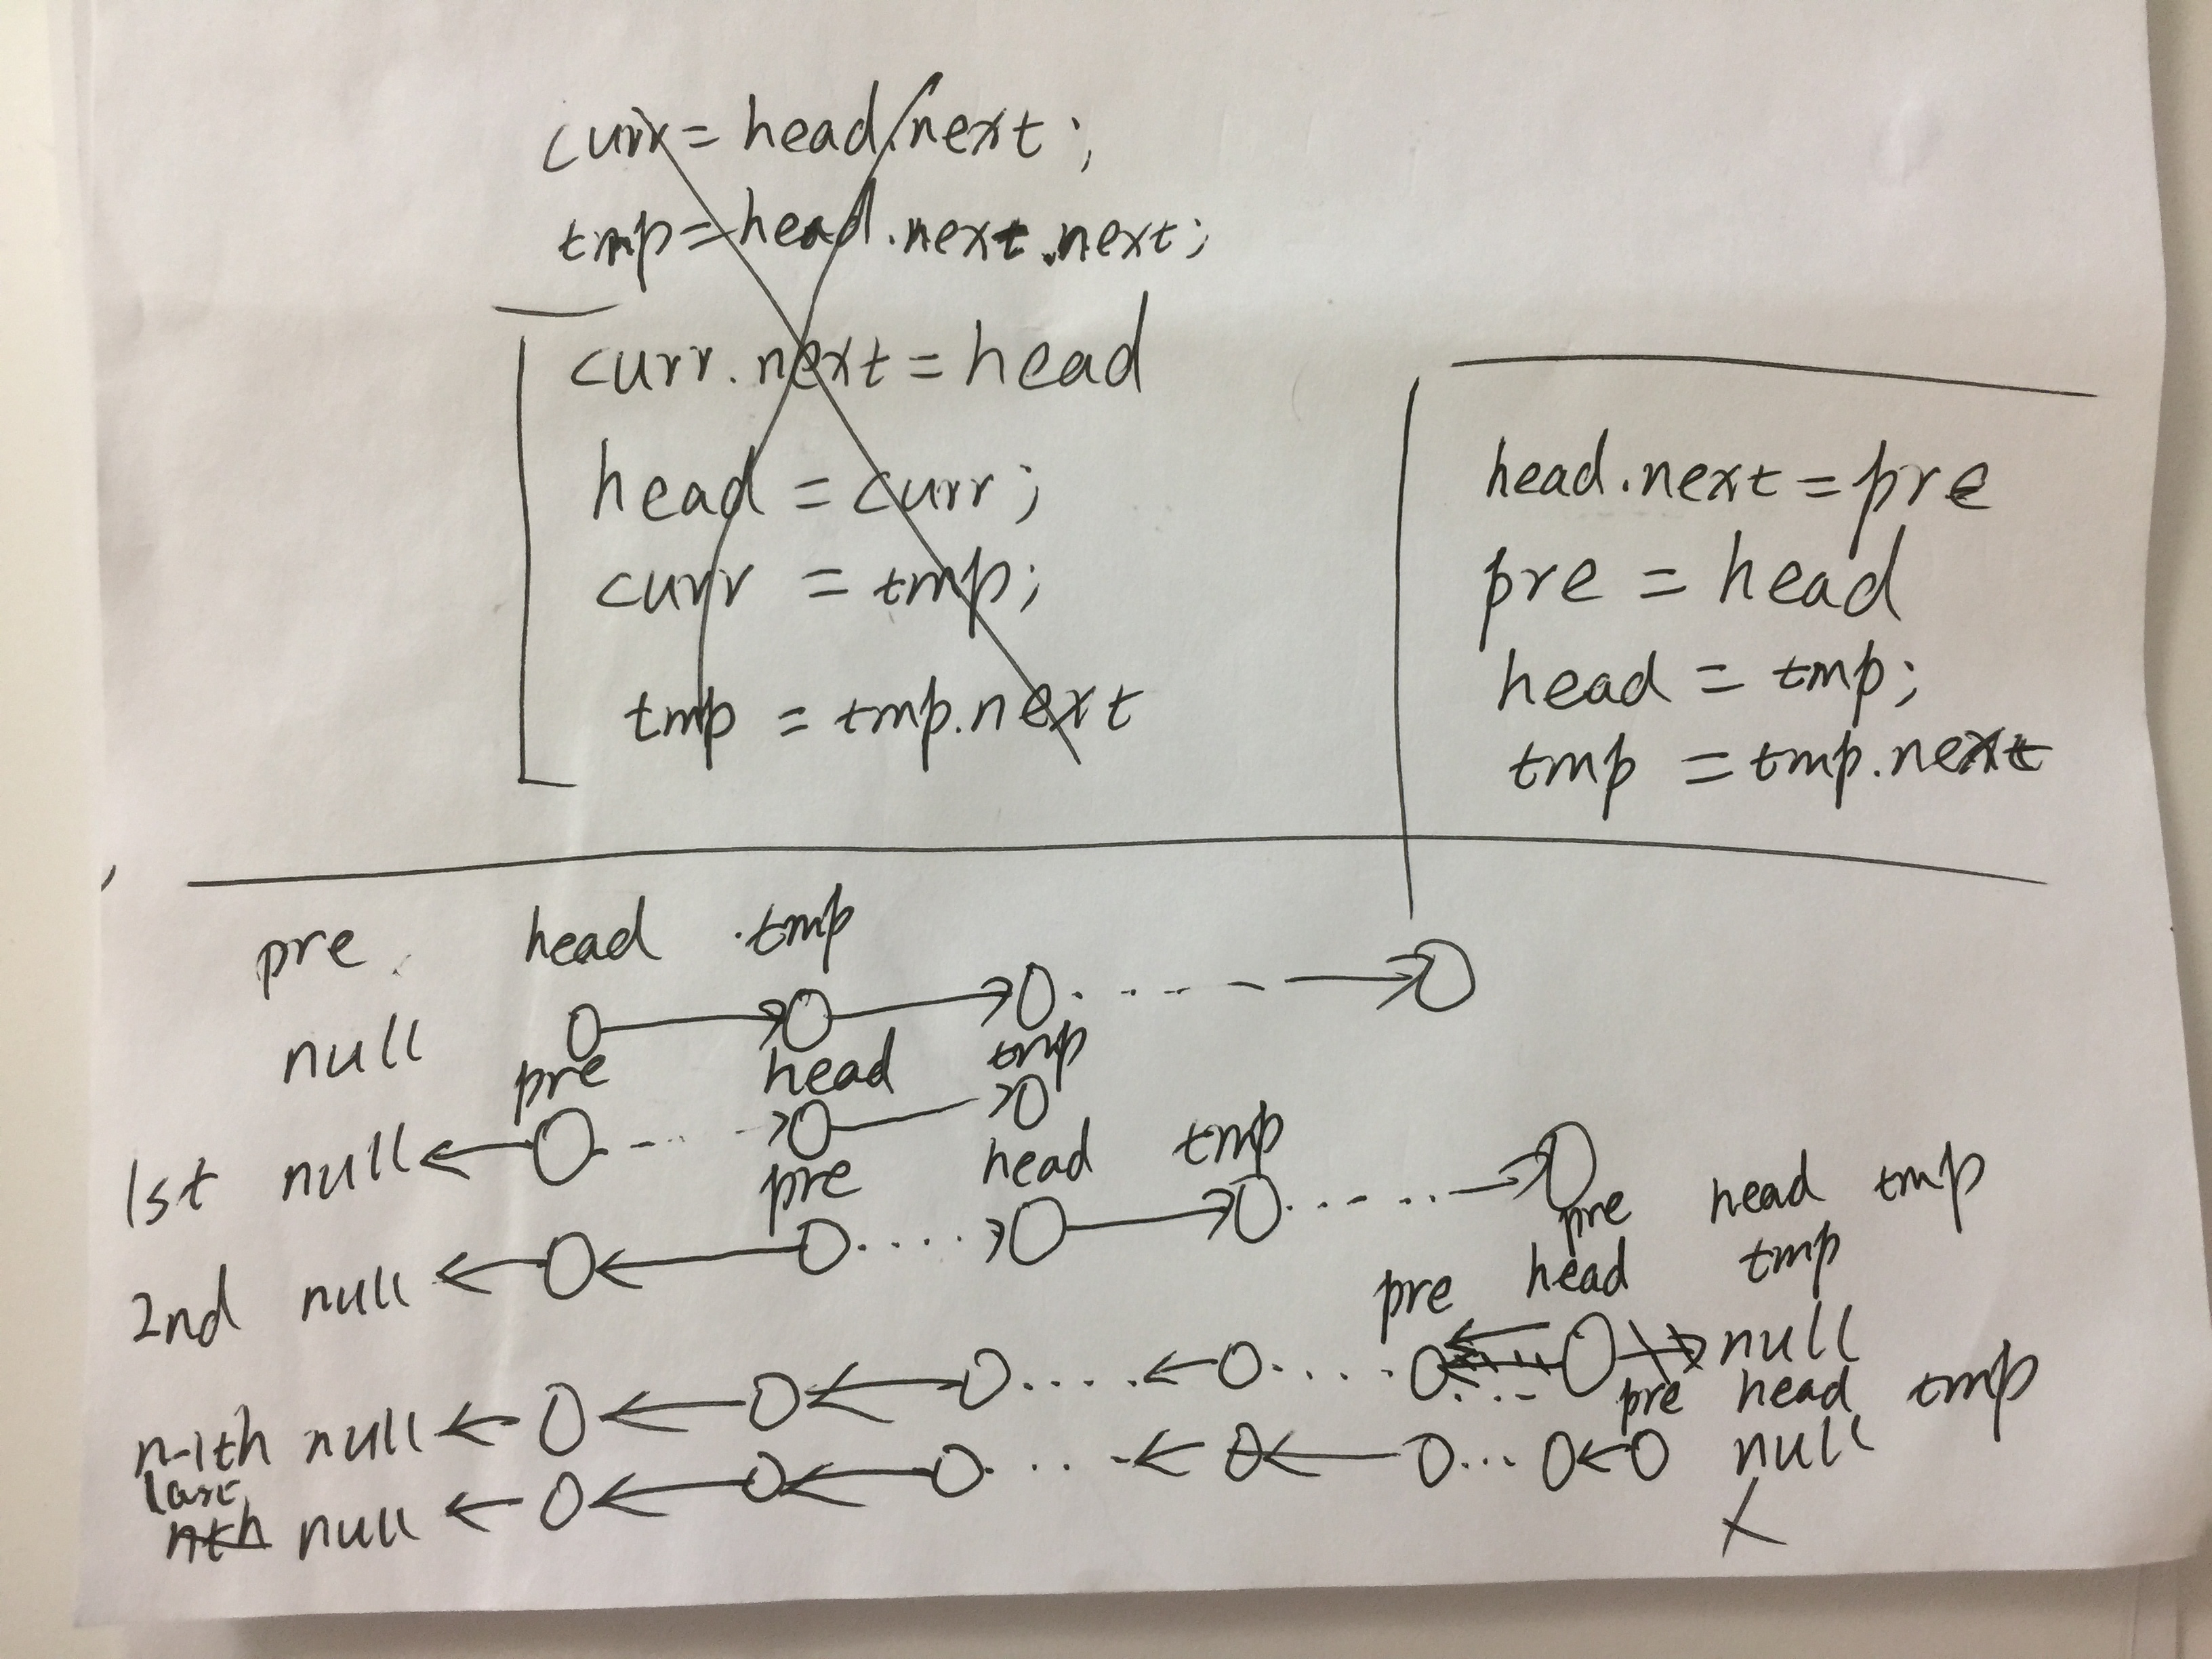 curr = head.next;
tmp = head.next.next;
curr.next = head
head = curr;
curr = tmp;
tmp = tmp.next
head.next = pre
pre = head
head = tmp;
tmp = tmp.next
pre head tmp
null
pre head tmp
1st null
pre head tmp
2nd null
pre head tmp
pre head tmp
n-1th null null
pre head tmp
last
nth null null